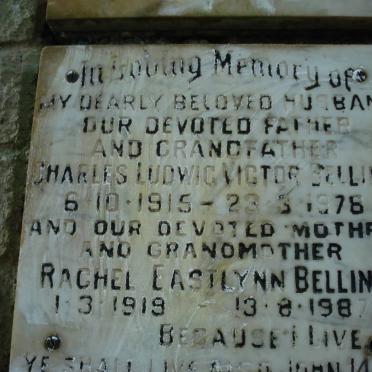 In Loving Memory of
MY DEARLY BELOVED HUSBAN
OUR DEVOTED FATHER
AND GRANDFATHER
CHARLES LUDWIG VICTOR BELLIN
6·10·1915 – 23·3·1978
AND OUR DEVOTED MOTHE
AND GRANDMOTHER
RACHEL EASTLYNN BELLIN
1·3·1919 – 13·8·1987
BECAUSE I LIVE
YE SHALL LIVE ALSO JOHN 14